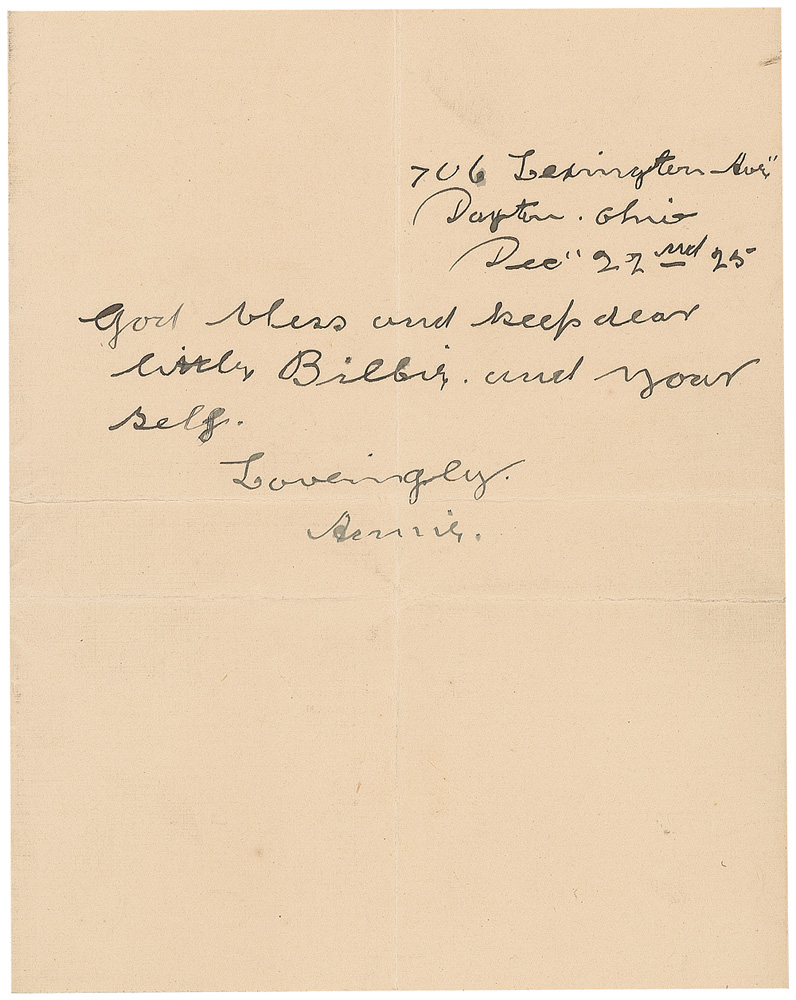 706 Lexington Ave"
Dayton. Ohio
Dec" 22nd 25
God bless and keep dear
little Billie. and your
self.
Loveingly.
Annie.